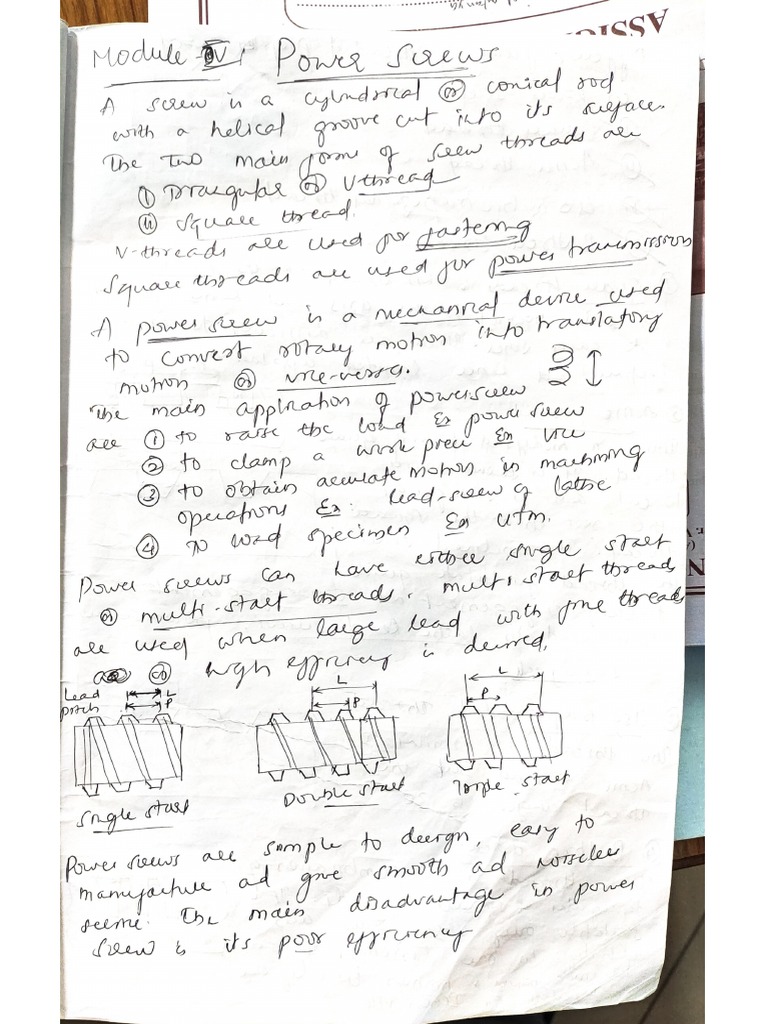 ASSIG
Module - IV : Power Screws
A screw is a cylindrical or conical rod
with a helical groove cut into its surface.
The two main forms of screw threads are
(i) Triangular or V-thread
(ii) Square thread.
V-threads are used for fastening
Square threads are used for power transmission
A power screw is a mechanical device used
to convert rotary motion into translatory
motion or vice-versa.
The main application of power screw
are ① to raise the load Ex power screw
② to clamp a work piece Ex vice
③ to obtain accurate motion in machining
operations Ex: lead-screw of lathe
④ To load specimen Ex UTM.
Power screws can have either single start
or multi-start threads. multi start threads
are used when large lead with fine threads
or high efficiency is desired.
Lead L
pitch P
L
P
L
P
Single start
Double start
Triple start
Power screws are simple to design, easy to
manufacture ad give smooth ad noiseless
The main disadvantage in power
screw is its poor efficiency